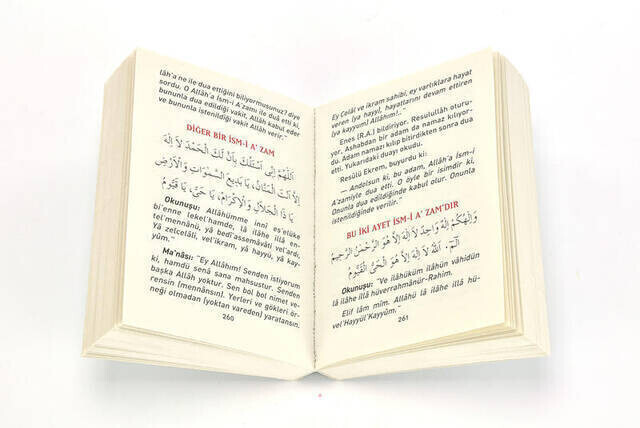 lâh'a ne ile dua ettiğini biliyormusunuz? diye
sordu. O Allâh'a İsm-i A'zamı ile dua etti ki,
bununla dua edildiği vakit, Allâh kabul eder
ve bununla istenildiği vakit Allâh verir."
DİĞER BİR İSM-İ A' ZAM
اَللّٰهُمَّ اِنّٖى اَسْئَلُكَ بِاَنَّ لَكَ الْحَمْدَ لَا اِلٰهَ
اِلَّا اَنْتَ الْمَنَّانُ، يَا بَدٖيعَ السَّمٰوَاتِ وَالْاَرْضِ
يَا ذَا الْجَلَالِ وَالْاِكْرَامِ، يَا حَىُّ، يَا قَيُّومُ
Okunuşu: "Allâhümme innî es'elüke
bi'enne lekel'hamde, lâ ilâhe illâ en-
tel'mennânü, yâ bedî'assemâvâti vel'ardı,
yâ zelcelâli, vel'ikram, yâ hayyü, yâ kay-
yûm."
Ma'nâsı: "Ey Allâhım! Senden istiyorum
ki, hamdü senâ sana mahsustur. Senden
başka Allâh yoktur. Sen bol bol nimet ve-
rensin (mennânsın). Yerleri ve gökleri ör-
neği olmadan (yoktan vareden) yaratansın.
260
Ey Celâl ve ikram sahibi, ey varlıklara hayat
veren (ya hayy), hayatlarını devam ettiren
(ya kayyum) Allâhım!.."
Enes (R.A.) bildiriyor. Resulullah oturu-
yor. Ashabdan bir adam da namaz kılıyor-
du. Adam namazı kılıp bitirdikten sonra dua
etti. Yukarıdaki duayı okudu.
Resülü Ekrem, buyurdu ki:
— Andolsun ki, bu adam, Allâh'a İsm-i
A'zamiyle dua etti. O öyle bir isimdir ki,
Onunla dua edildiğinde kabul olur. Onunla
istenildiğinde verilir."
BU İKİ AYET İSM-İ A' ZAM'DIR
وَاِلٰهُكُمْ اِلٰهٌ وَاحِدٌ لَا اِلٰهَ اِلَّا هُوَ الرَّحْمٰنُ الرَّحٖيمُ
الٓمٓ. اَللّٰهُ لَا اِلٰهَ اِلَّا هُوَ الْحَىُّ الْقَيُّومُ
Okunuşu: "Ve ilâhüküm ilâhün vâhidün
lâ ilâhe illâ hüverrahmânür-Rahim.
Elif lâm mîm. Allâhü lâ ilâhe illâ hü-
vel'Hayyül'Kayyûm."
261